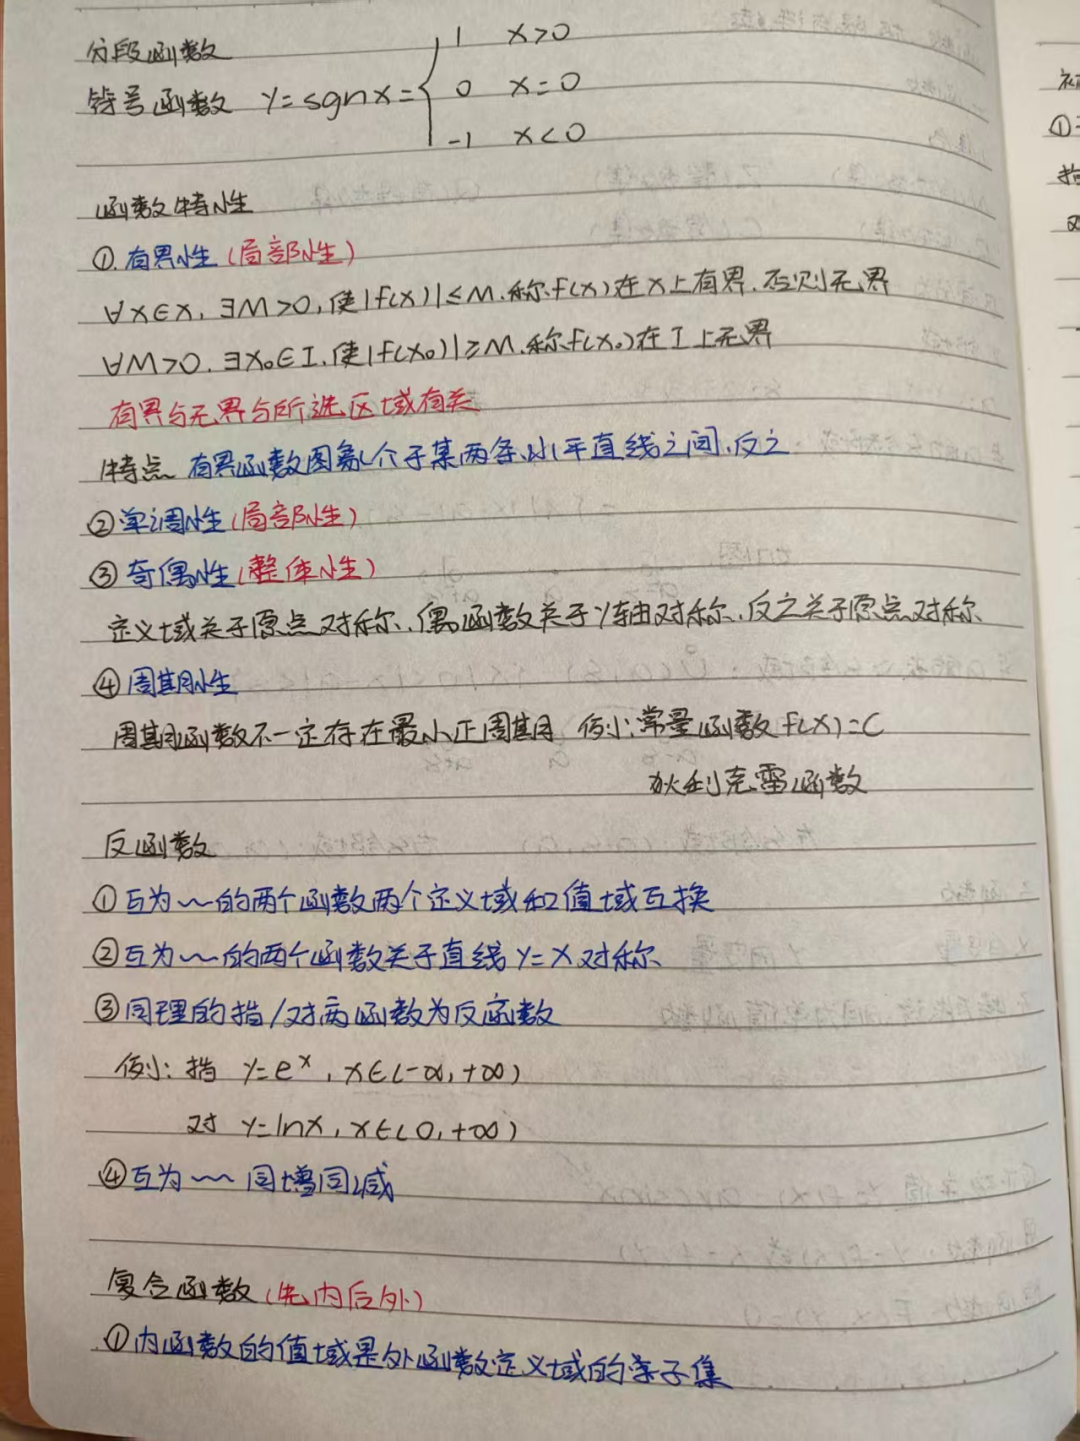 分段函数
符号函数 y=sgnx={ 1 x>0
0 x=0
-1 x<0
函数特性
①.有界性(局部性)
∀x∈X,∃M>0,使|f(x)|≤M.称f(x)在X上有界.否则无界
∀M>0.∃x₀∈I.使|f(x₀)|≥M.称f(x₀)在I上无界
有界与无界与所选区域有关
特点 有界函数图象介于某两条水平直线之间.反之
②单调性(局部性)
③奇偶性(整体性)
定义域关于原点对称.偶函数关于y轴对称.反之关于原点对称
④周期性
周期函数不一定存在最小正周期 例:常量函数f(x)=C
狄利克雷函数
反函数
①互为~的两个函数两个定义域和值域互换
②互为~的两个函数关于直线y=x对称
③同理的指/对两函数为反函数
例:指 y=eˣ,x∈(-∞,+∞)
对 y=lnx,x∈(0,+∞)
④互为~同增同减
复合函数(先内后外)
①内函数的值域是外函数定义域的子集